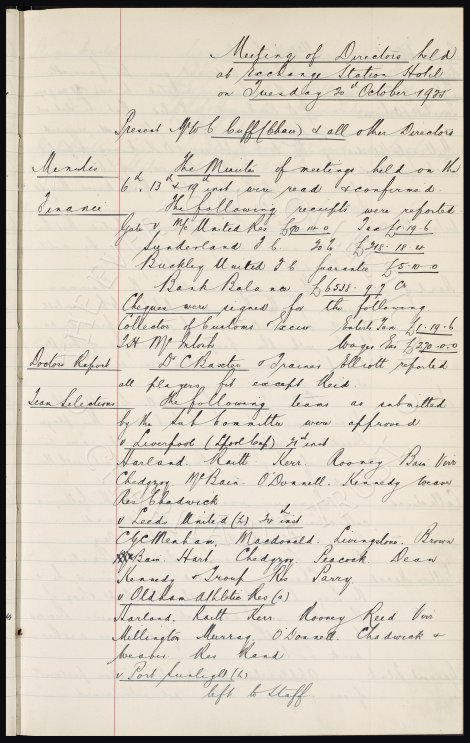 Meeting of Directors held
at Exchange Station Hotel
on Tuesday 20th October 1925
Present Mr W C Cuff (Chair) & all other Directors
Minutes The Minutes of meetings held on the
6th, 13th & 19th inst were read & confirmed.
Finance The following receipts were reported
Gate v Mc United Res £70-10-0 Tax £1-19-6
Sunderland F C. £218-18-11
Buckley United F C Guarantee £5-10-0
Bank Balance £6538-9-9 Cr
Cheques were signed for the following
Collector of Customs Excise Enterts Tax £1-19-6
T H McIntosh Wages Ex £270-0-0
Doctors Report Dr C Baxter & Trainer Elliott reported
all players fit except Reid.
Team Selections The following teams as submitted
by the sub Committee were approved
v Liverpool (Lpool Cup) 21st inst
Harland. Raitt. Kerr. Rooney Bain Virr
Chedgzoy. McBain. O'Donnell. Kennedy Weaver
Res Chadwick
v Leeds United (L) 24th inst
C/g Menham, Macdonald. Livingstone. Brown
Bain. Hart. Chedgzoy. Peacock. Dean
Kennedy & Troup Res Parry.
v Oldham Athletic Res (a)
Harland. Raitt Kerr. Rooney Reed Virr
Millington Murray, O'Donnell. Chadwick &
Weaver. Res Rand
v Port Sunlight (h)
left to Staff.